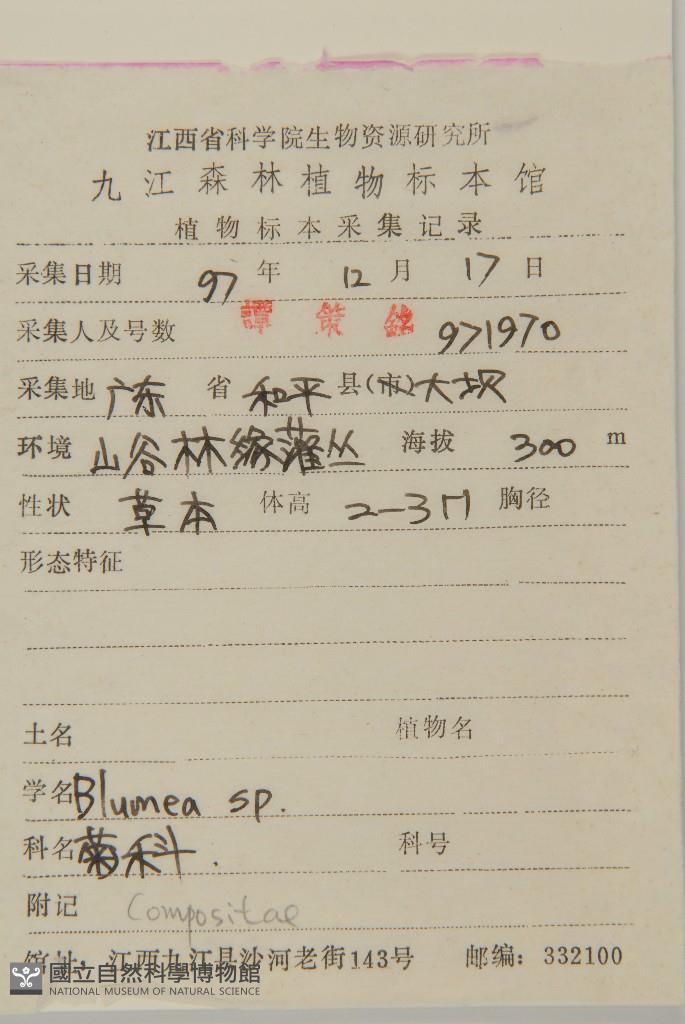 江西省科学院生物资源研究所
九江森林植物标本馆
植物标本采集记录
采集日期 97年 12月 17日
采集人及号数 譚策銘 971970
采集地 广东省 和平县(市)大坝
环境 山谷林缘灌丛 海拔 300 m
性状 草本 体高 2-3 胸径
形态特征
土名 植物名
学名 Blumea sp.
科名 菊科. 科号
附记 Compositae
馆址: 江西九江县沙河老街143号 邮编: 332100
國立自然科學博物館
NATIONAL MUSEUM OF NATURAL SCIENCE